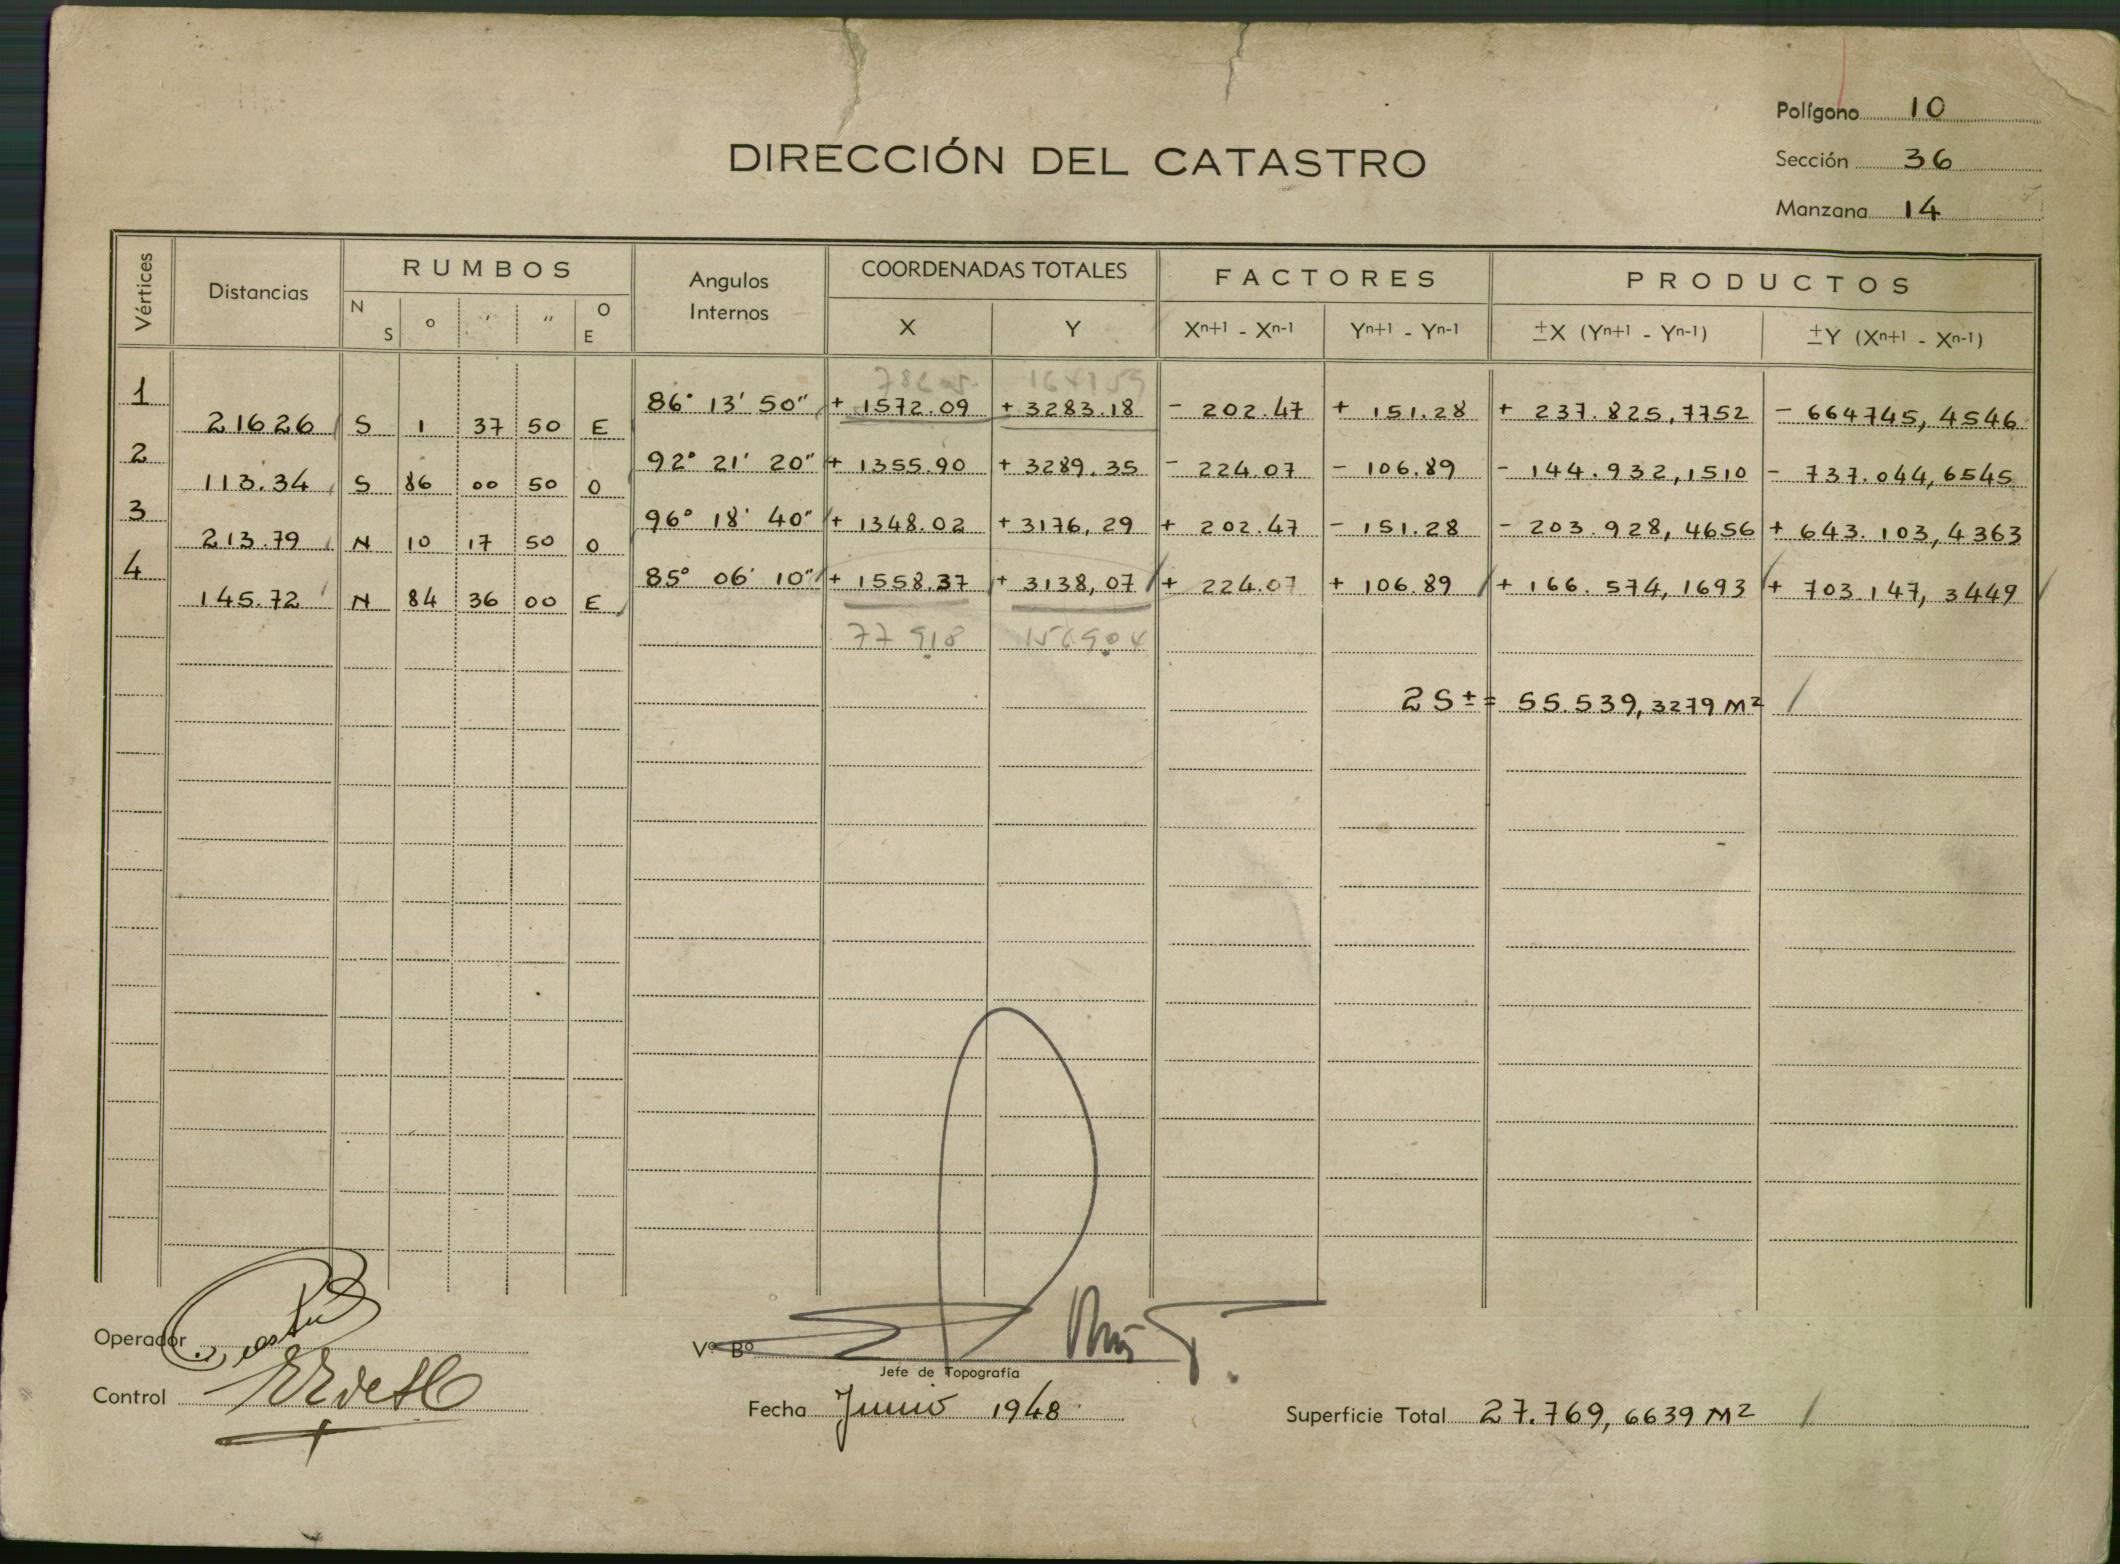 Polígono 10
DIRECCIÓN DEL CATASTRO
Sección 36
Manzana 14
Vértices Distancias RUMBOS Angulos Internos COORDENADAS TOTALES FACTORES PRODUCTOS
N S ° ' " O E X Y Xn+1 - Xn-1 Yn+1 - Yn-1 ±X (Yn+1 - Yn-1) ±Y (Xn+1 - Xn-1)
1 86° 13' 50" + 1572.09 + 3283.18 - 202.47 + 151.28 + 237.825,7752 - 664745,4546
21626 S 1 37 50 E
2 92° 21' 20" + 1355.90 + 3289.35 - 224.07 - 106.89 - 144.932,1510 - 737.044,6545
113.34 S 86 00 50 O
3 96° 18' 40" + 1348.02 + 3176,29 + 202.47 - 151.28 - 203.928,4656 + 643.103,4363
213.79 N 10 17 50 O
4 85° 06' 10" + 1558.37 + 3138,07 + 224.07 + 106.89 + 166.574,1693 + 703.147,3449
145.72 N 84 36 00 E
77 918 156904
2S ± = 55.539,3279 M2
Operador
Vº Bº
Jefe de Topografía
Control
Fecha Junio 1948
Superficie Total 27.769,6639 M2